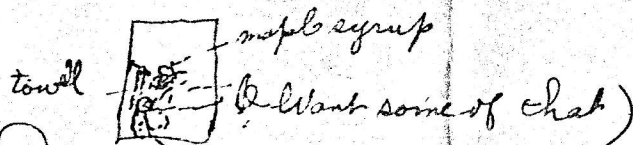 mapl syrup
towell
(I want some of that)